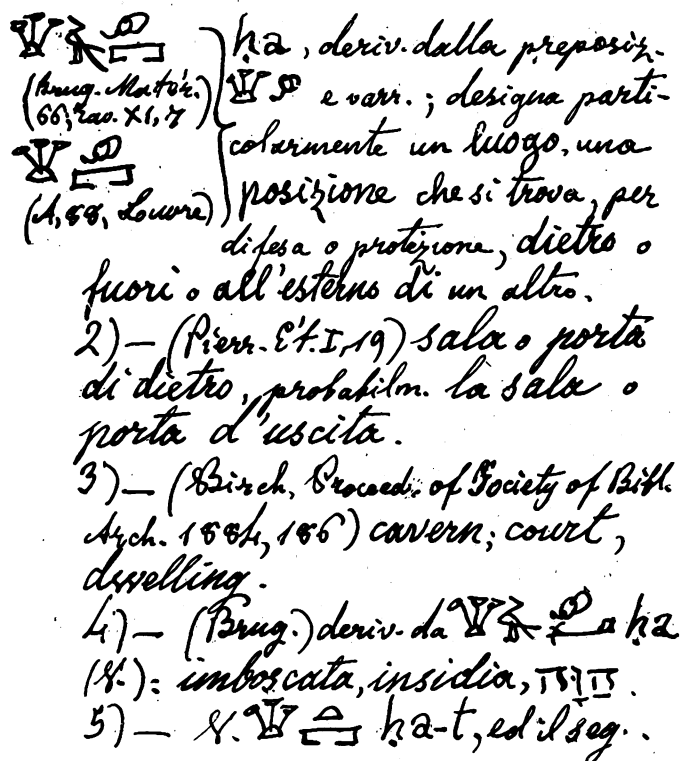 𓇉𓄿𓏲𓉐 ḥa, deriv. dalla preposiz.
(Brug. Matér.
66, tav. XI, 7)
𓇉𓏲 e varr.; designa parti-
𓇉𓏲𓉐 colarmente un luogo, una
(A, 88, Louvre) posizione che si trova, per
difesa o protezione, dietro o
fuori o all'esterno di un altro.
2) — (Pierr. Ét. I, 19) sala o porta
di dietro, probabilm. la sala o
porta d'uscita.
3) — (Birch, Proceed. of Society of Bibl.
Arch. 1884, 186) cavern; court,
dwelling.
4) — (Brug.) deriv. da 𓇉𓄿𓏲𓂝 ḥa
(V.): imboscata, insidia,
5) — V. 𓇉𓏏𓉐 ḥa-t, ed il seg.